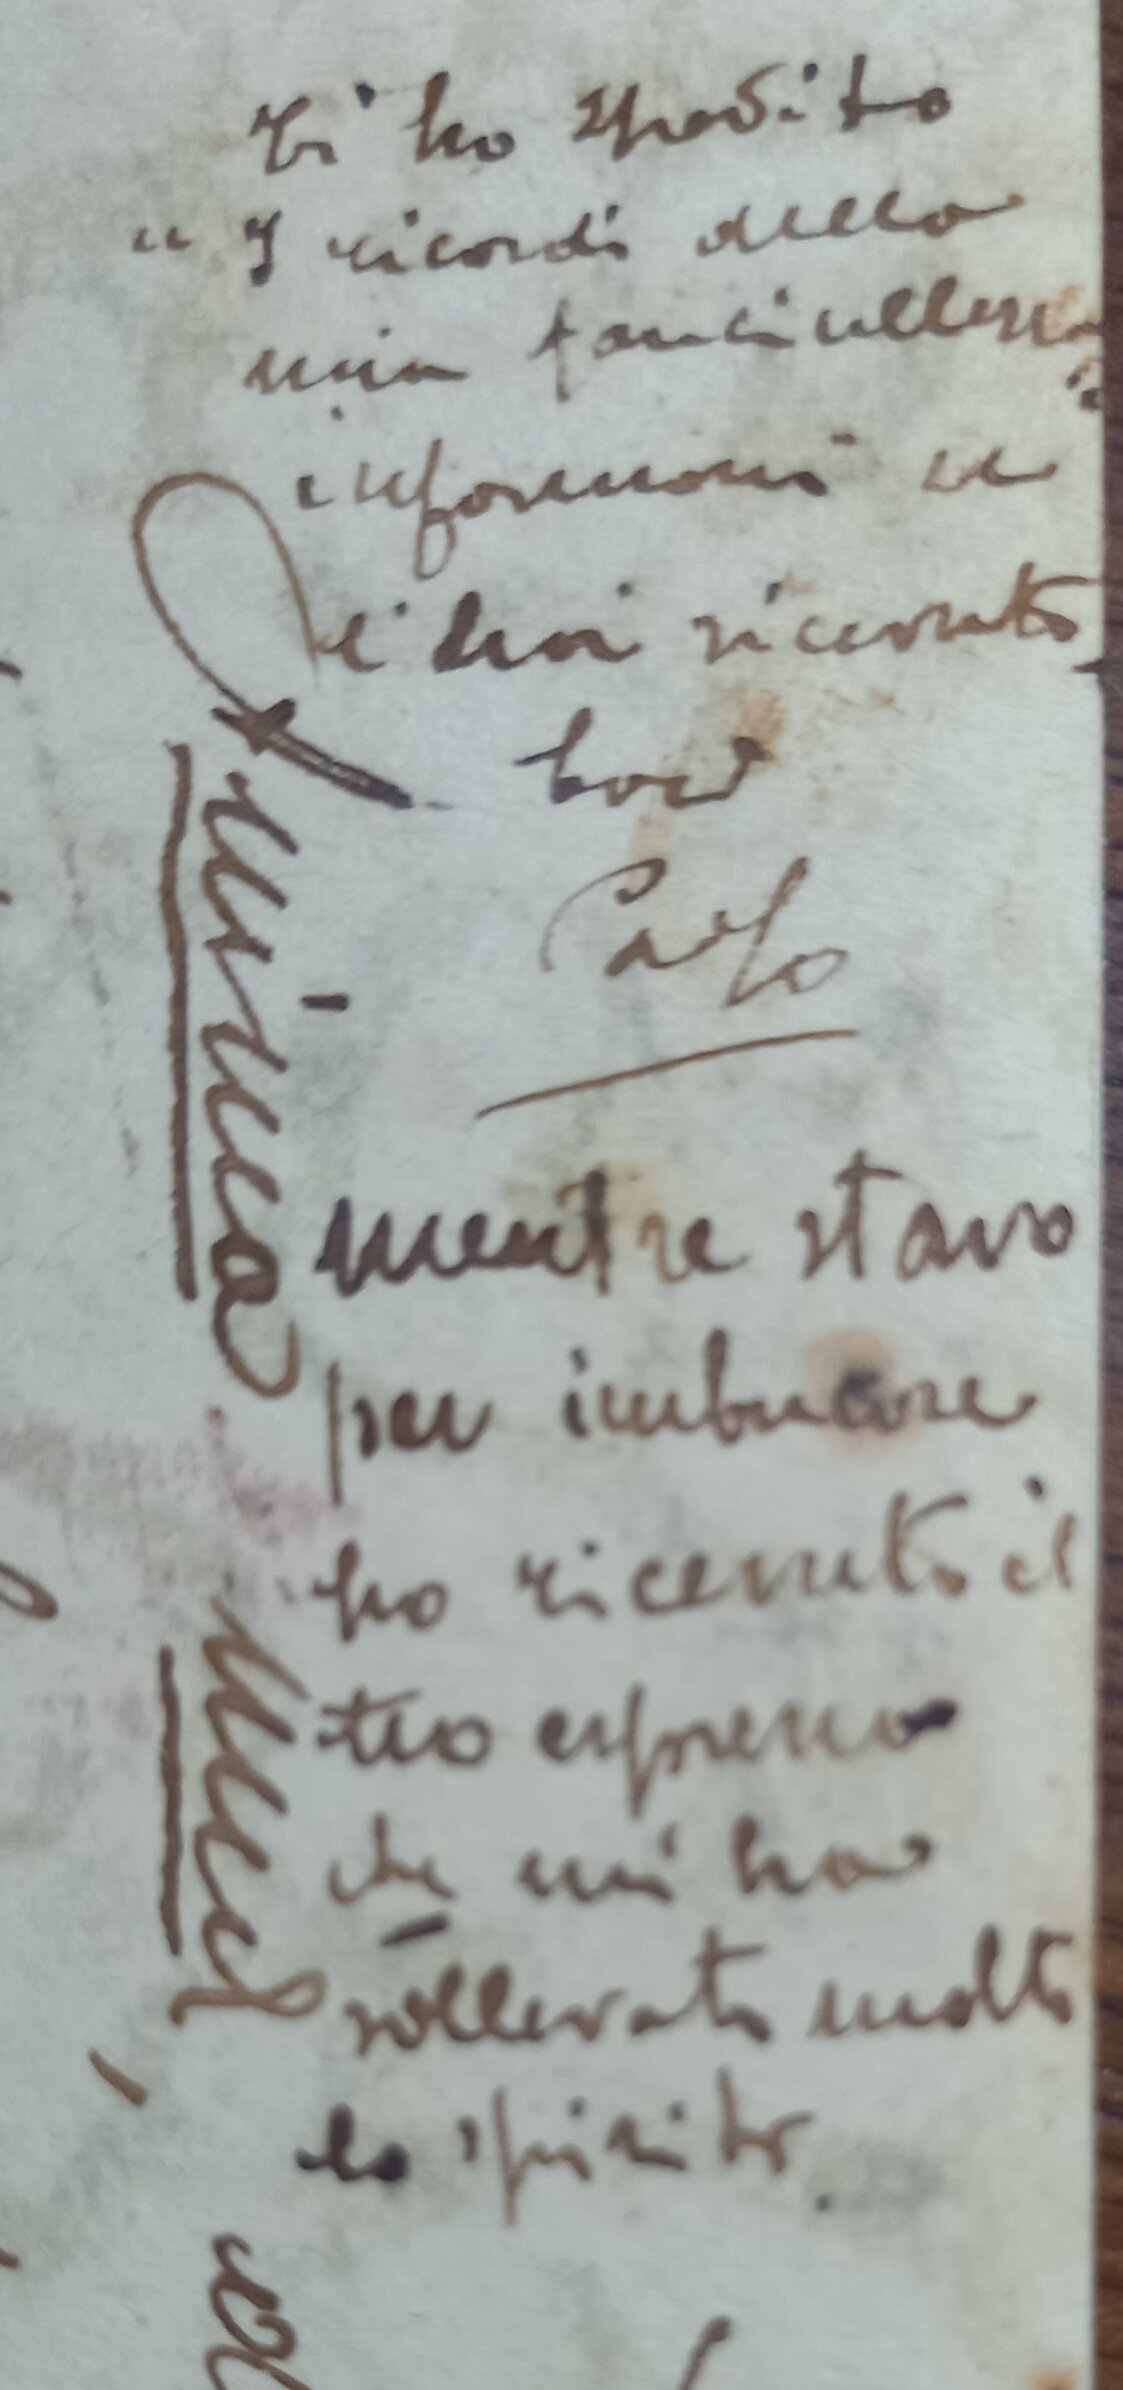 Ti ho spedito
" I ricordi della
mia fanciullezza
"
informami se
li hai ricevuto,
baci
Carlo
mentre stavo
per imbucare
ho ricevuto il
tuo espresso
che mi ha
sollevato molto
lo spirito.